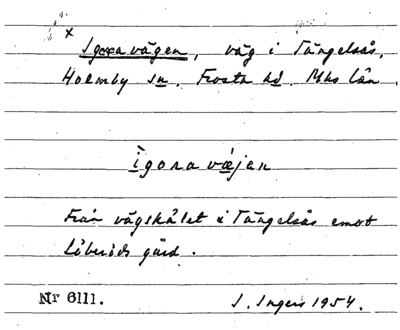 x
Igoravägen, väg i Tängelsås,
Holmby sn. Frosta hd. Mhs län.
ìgoravæjan
Från vägskälet i Tängelsås emot
gård.
Nr 6111. J. Ingers 1954.